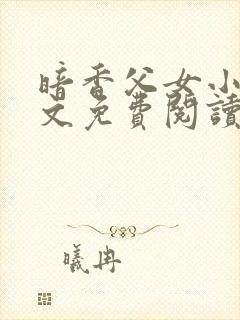 暗香父女小
文免費閱讀
曦冉